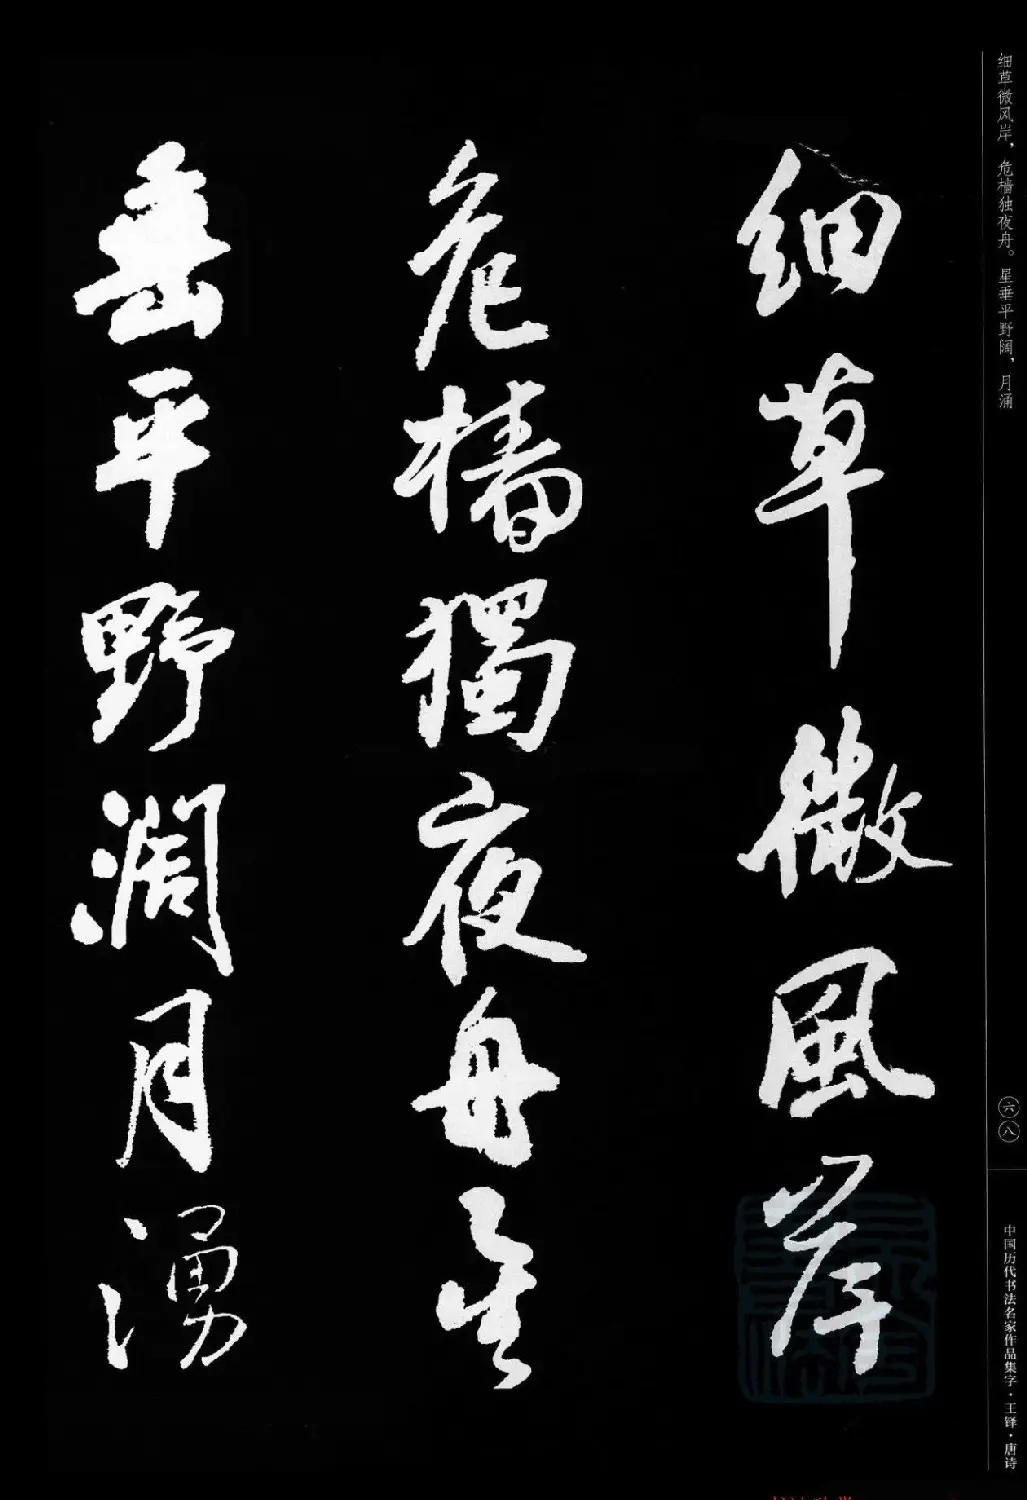 细草微风岸，危樯独夜舟。星垂平野阔，月涌
細草微風岸
危檣獨夜舟星
垂平野濶月湧
六八
中国历代书法名家作品集字·王铎·唐诗